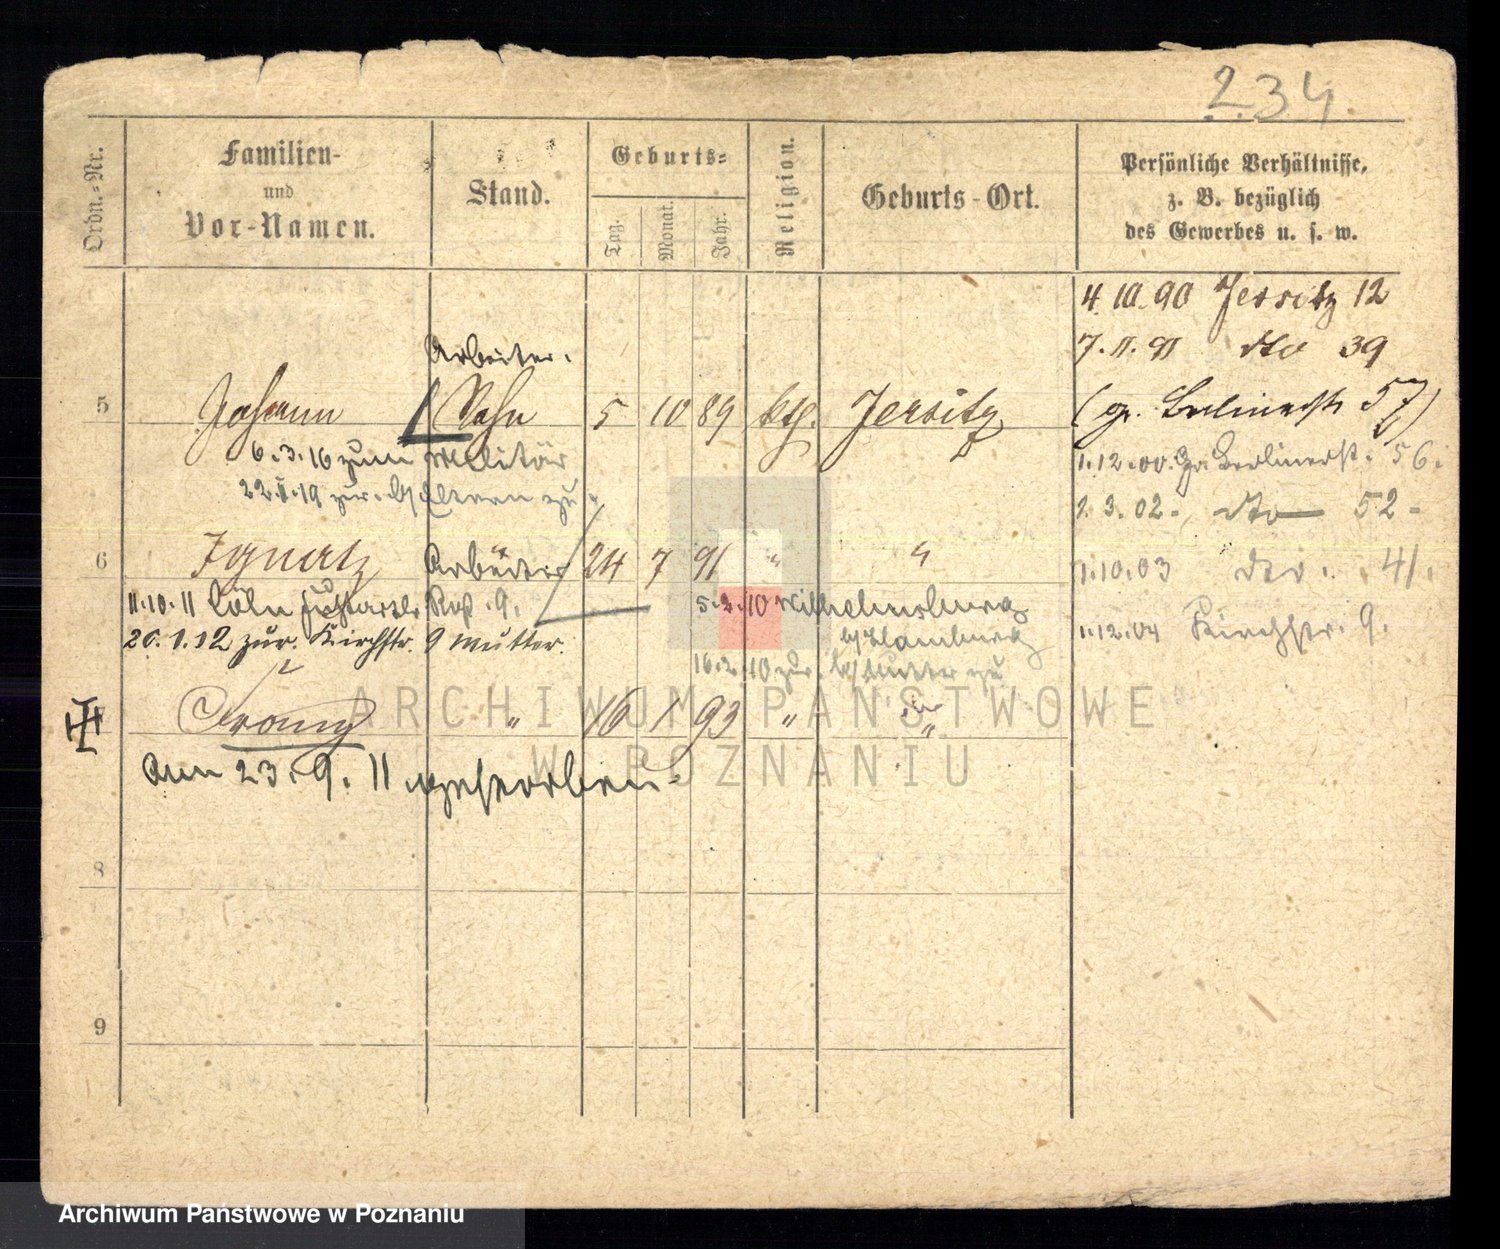 234.
Ordn.-Nr.
Familien-
und
Vor-Namen.
Stand.
Geburts-
Tag.
Monat.
Jahr.
Religion.
Geburts-Ort.
Persönliche Verhältnisse,
z. B. bezüglich
des Gewerbes u. s. w.
4.10.90 Jersitz 12
7.11.91 dto 39
Arbeiter.
5 Johann Sohn 5 10 89 kth. Jersitz
(gr. Berlinerstr. 57)
6.3.16 zum Militär
1.12.00. Gr. Berlinerst. 56.
22. 19 zur. b/ Eltern zu
1.3.02. dto 52
6 Ignatz Arbeiter 24 7 91 " "
1.10.03 dto. 41.
11.10.11 Cöln 9.
5.2.10 Wilhelmsburg
b/ Hamburg
20.1.12 zur. Kirchstr. 9 Mutter.
1.12.04 Kirchstr. 9.
16.2.10 zur. b/ Mutter zu
" 16 1 93 " "
Am 23.9.11 gestorben.
8
9
ARCHIWUM PAŃSTWOWE
W POZNANIU
Archiwum Państwowe w Poznaniu